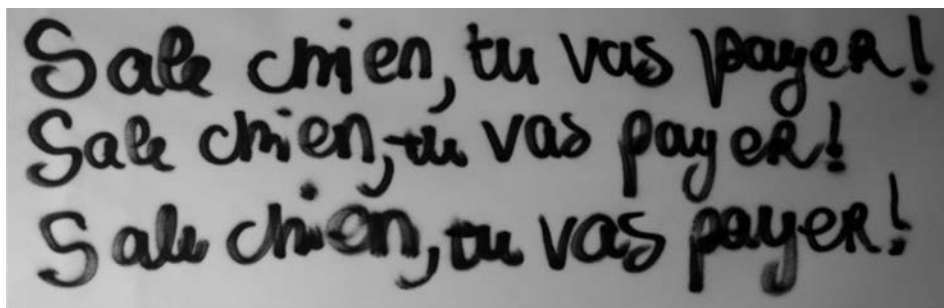 Sale chien, tu vas payer!
Sale chien, tu vas payer!
Sale chien, tu vas payer!